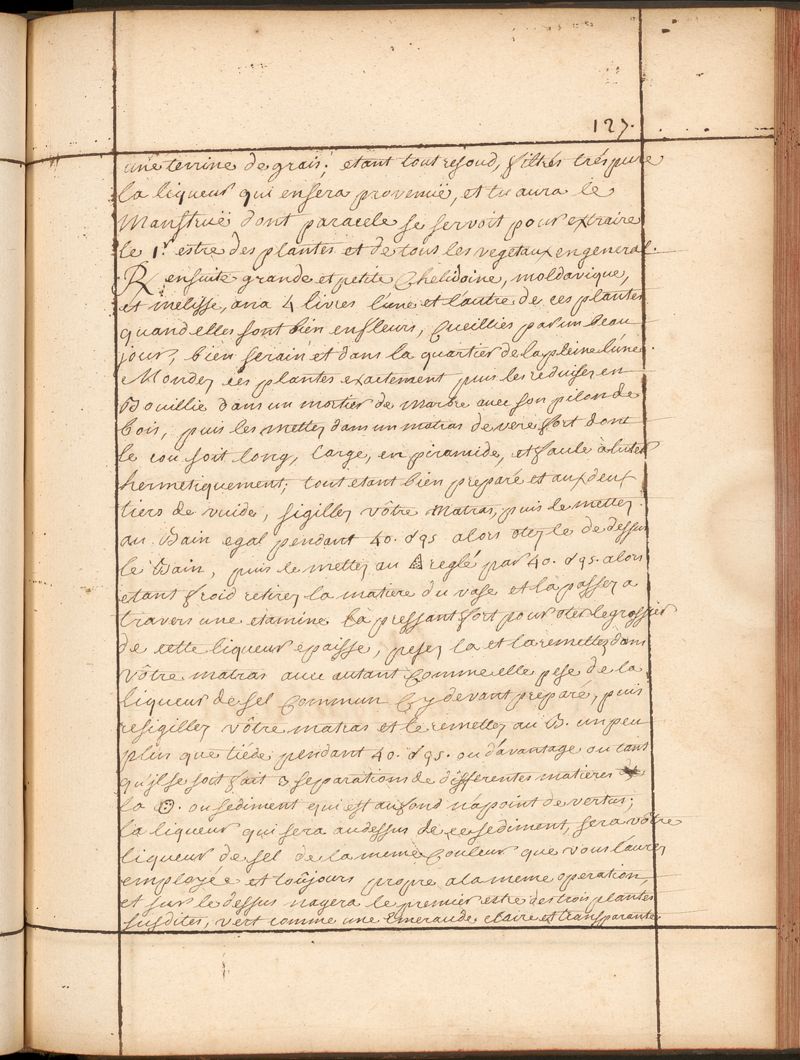 127.
une terrine de grais; etant tout resoud, filtrés trés pure
la liqueur qui en sera provenuë, et tu aura le
Manstruë dont paracele se servoit pour extraire
le 1r. estre des plantes et de tous les vegetaux en general.
℞ ensuite grande et petite Chelidoine, moldavique,
et melisse, ana 4 livres l'une et l'autre de ces plantes
quand elles sont bien en fleurs, Cueillies par un beau
jour, bien serain et dans la quartier de la pleine lúne.
Mondez ces plantes exactement puis les reduisez en
Bouillie dans un mortier de Marbre avec son pilon de
bois, puis les mettez dans un matras de vere fort dont
le cou soit long, large, en piramide, et facile à luter
hermetiquement; tout etant bien preparé et aux deux
tiers de vuide, sigillez vôtre Matras, puis le mettez
au Bain egal pendant 40. alors otez le de dessus
le Bain, puis le mettez au reglé par 40. alors
etant froid retirez la matiere du vase et la passez a
travers une etamine la pressant fort pour oter le grossier
de cette liqueur epaisse, pesez la et la remettez dans
vôtre matras avec autant Comme elle pese de la
liqueur de sel Commun Cy devant preparé, puis
resigillez vôtre matras et le remettez au B. un peu
plus que tiéde pendant 40. ou d'avantage ou tant
qu'jl se soit fait 3 separations de differentes matieres
la . ou sediment qui est au fond n'a point de vertus;
la liqueur qui sera audessus de ce sediment, sera vôtre
liqueur de sel de la meme Couleur que vous l'aurez
employée et toûjours propre a la meme operation,
et sur le dessus nagera le premier estre des trois plantes
susdites, vert comme une Emeraude claire et transparante